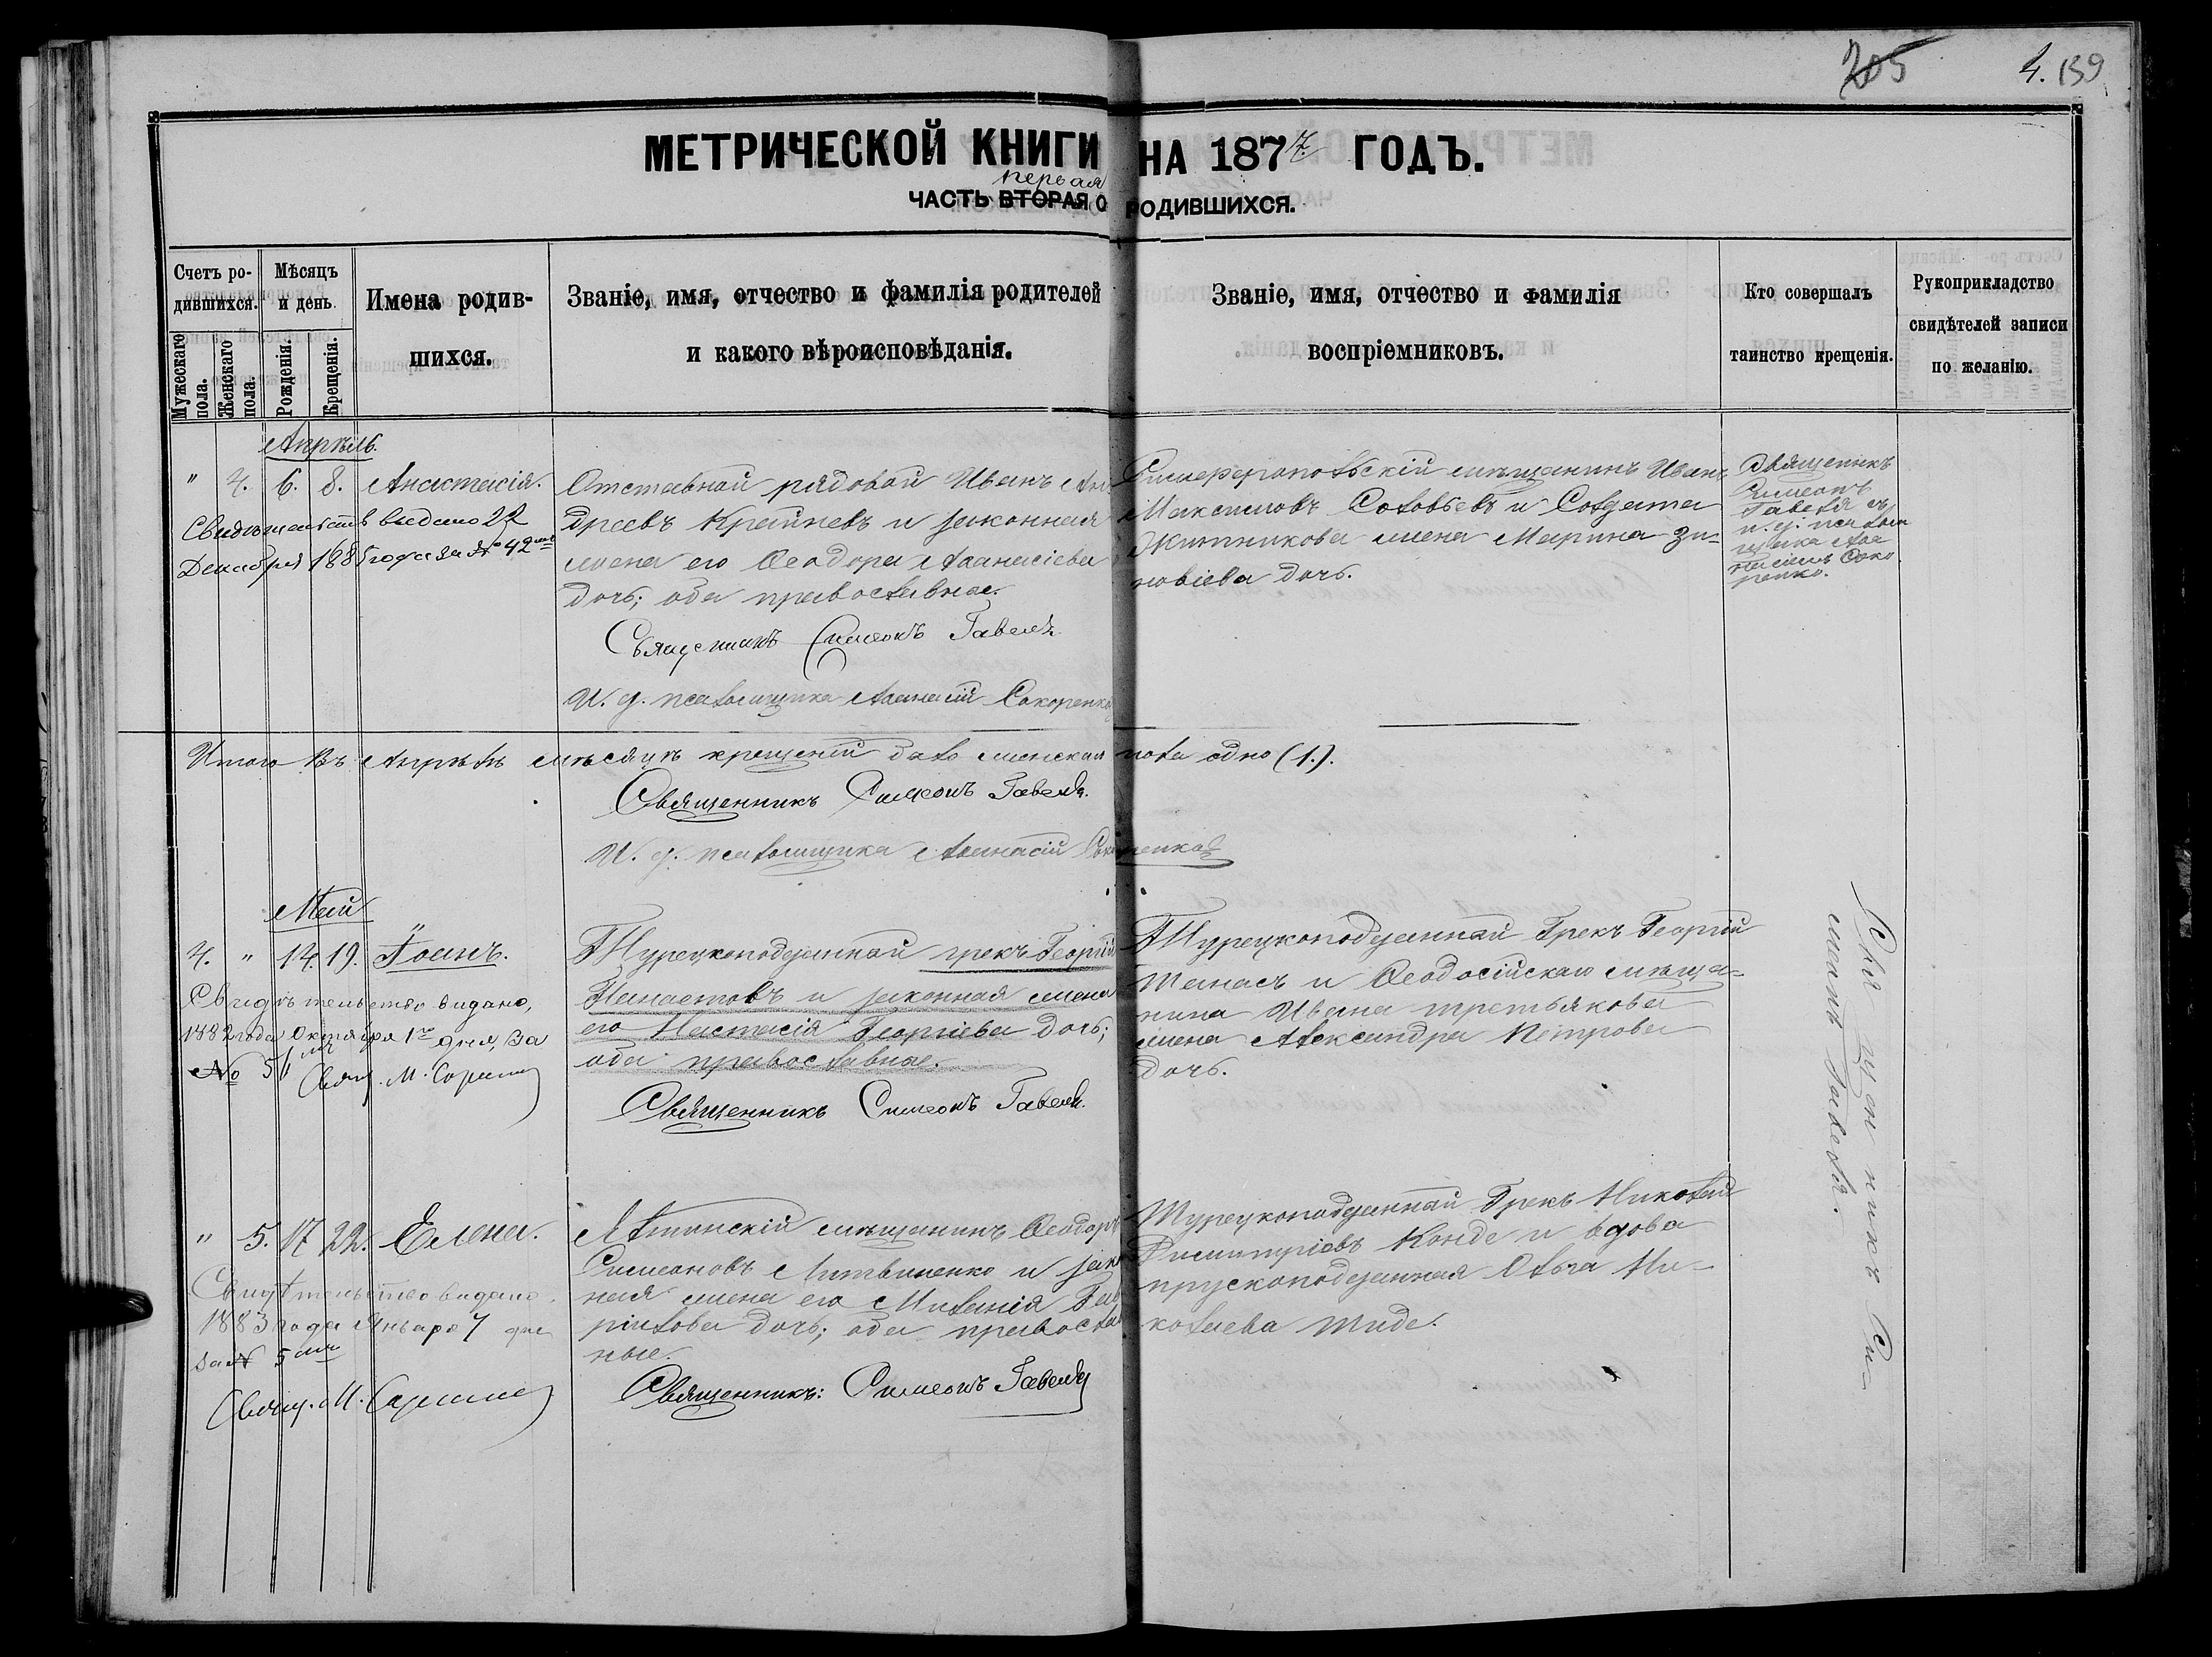 205
4. 159
МЕТРИЧЕСКОЙ КНИГИ НА 1877. ГОДЪ.
первая
ЧАСТЬ ВТОРАЯ О РОДИВШИХСЯ.
Счетъ родившихся.
Мужескаго пола.
Женскаго пола.
Мѣсяцъ и день.
Рожденія.
Крещенія.
Имена родившихся.
Званіе, имя, отчество и фамилія родителей
и какого вѣроисповѣданія.
Званіе, имя, отчество и фамилія
воспріемниковъ.
Кто совершалъ
таинство крещенія.
Рукоприкладство
свидѣтелей записи
по желанію.
Апрѣль.
" 4. 6. 8. Анастасія.
Свидѣтельств выдано 22
Декабря 1885 года за № 42
Отставной рядовой Иванъ Ан
дреевъ Крайневъ и законная
жена его Ѳеодора Аѳанасіева
дочь; оба православные.
Священникъ Симеонъ Гавеля
И. д. псаломщика Аѳанасій Сокоренко
Симферопольскій мѣщанинъ Иванъ
Максимовъ Соловьевъ и Солдата
Житникова жена Марина Зи-
новіева дочь.
Священникъ
Симеонъ
Гавеля съ
и. д. псалом
щика Аѳа
насіемъ Соко
ренко.
Итого въ Апрѣлѣ мѣсяцѣ крещеній было женскаго пола одно (1.).
Священникъ Симеонъ Гавеля.
И. д. псаломщика Аѳанасій Сокоренко
Май
4. " 14. 19. Іоанъ.
Свидѣтельство видано,
1882 года Октября 1го дня, за
№ 51
Свящ. М.
Турецкоподданный грекъ Георгій
Панаетовъ и законная жена
его Настасія Георгіева дочь;
оба православные.
Священникъ Симеонъ Гавеля.
Турецкоподданный Грекъ Георгій
Танасъ и Ѳеодосійскаго мѣща-
нина Ивана третьякова
жена Александра Петрова
дочь.
Священникъ Си-
меонъ Гавеля.
" 5. 17. 22. Елена.
Свидѣтельство видано,
1883 года Января 7 дня
за № 5
Свящ. М.
Ялтинскій мѣщанинъ Ѳеодоръ
Симеоновъ Литвиненко и закон
ная жена его Миланія Гав
рілова дочь; оба православ
ные.
Священникъ: Симеонъ Гавеля
Турецкоподданный Грекъ Николай
Димитріовъ Конде и вдова
прускоподданная Ольга Ни-
колаева Тиде.